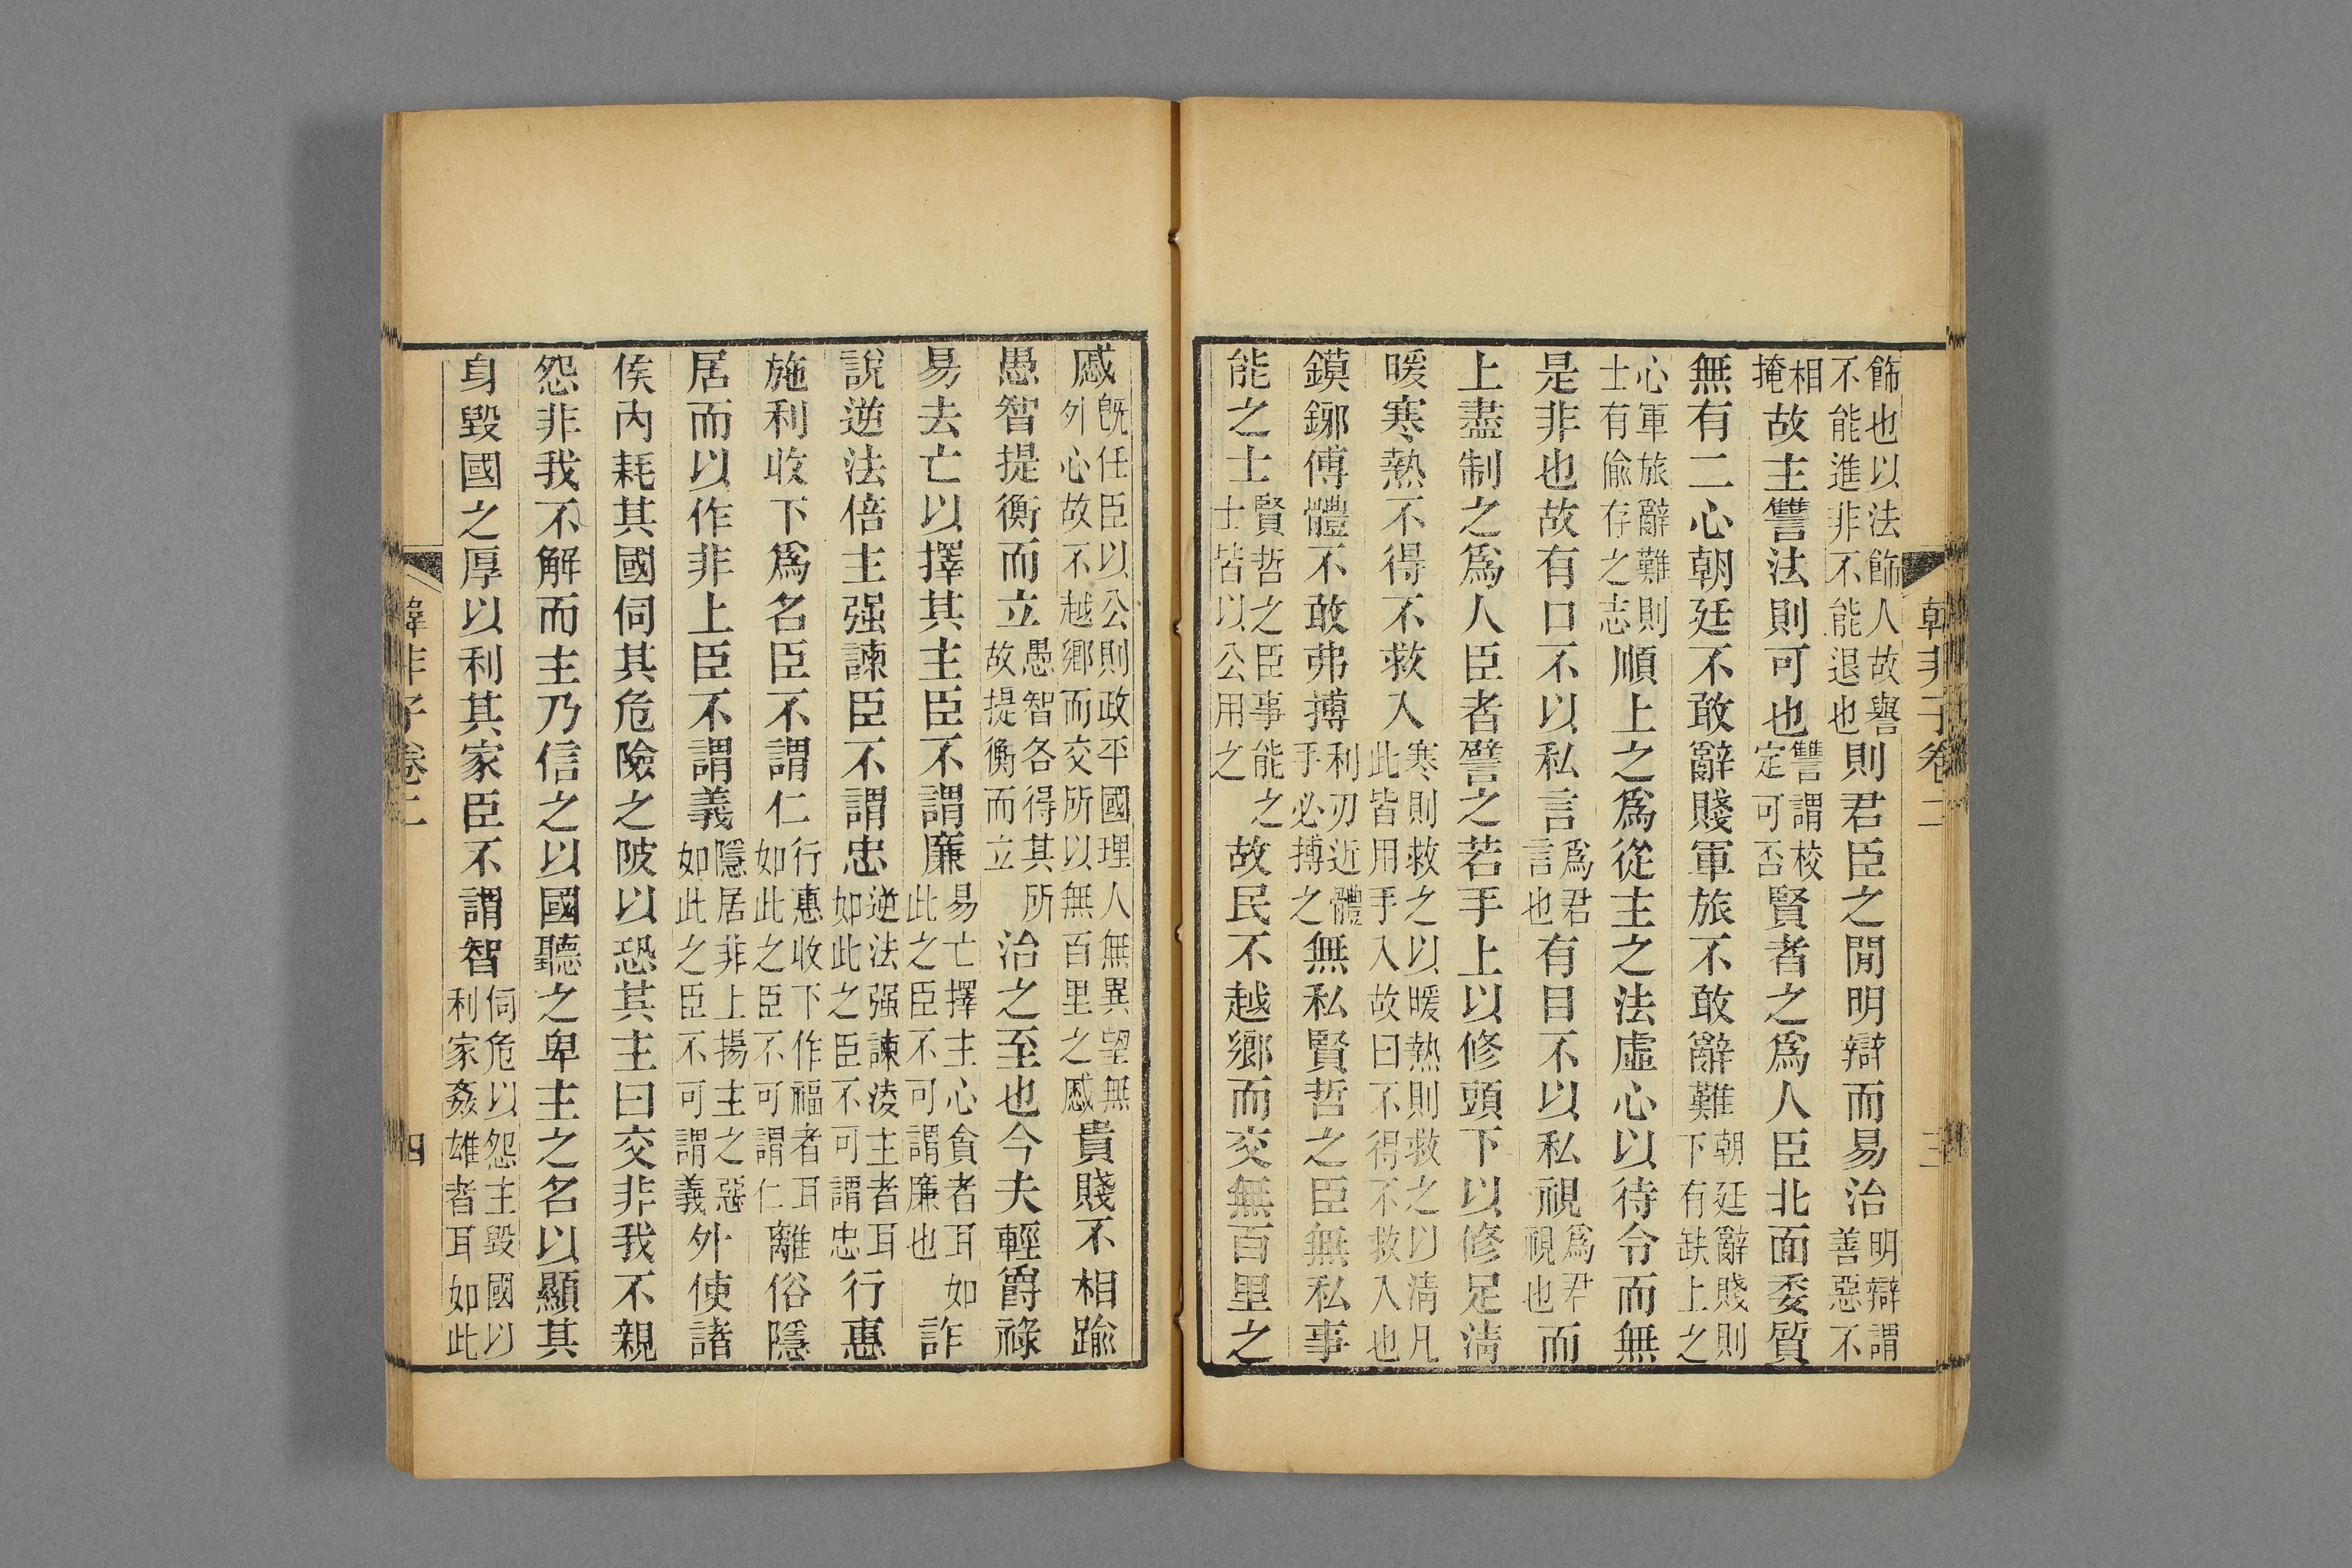 韓非子卷二　三
飾也以法飾人故譽不能進非不能退也則君臣之閒明辯而易治明辯謂善惡不
相掩故主讐法則可也讐謂校定可否賢者之爲人臣北面委質
無有二心朝廷不敢辭賤軍旅不敢辭難朝廷辭賤則下有缺上之
心軍旅辭難則士有偷存之志順上之爲從主之法虛心以待令而無
是非也故有口不以私言爲君言也有目不以私視爲君視也而
上盡制之爲人臣者譬之若手上以修頭下以修足清
暖寒熱不得不救入寒則救之以暖熱則救之以清凡此皆用手入故曰不得不救入也
鏌鋣傅體不敢弗搏利刃近體手必搏之無私賢哲之臣無私事
能之士賢哲之臣事能之士皆以公用之故民不越鄉而交無百里之
慼既任臣以公則政平國理人無異望無外心故不越鄉而交所以無百里之慼貴賤不相踰
愚智提衡而立愚智各得其所故提衡而立治之至也今夫輕爵祿
易去亡以擇其主臣不謂廉易亡擇主心貪者耳如此之臣不可謂廉也詐
說逆法倍主强諫臣不謂忠逆法强諫淩主者耳如此之臣不可謂忠行惠
施利收下爲名臣不謂仁行惠收下作福者耳如此之臣不可謂仁離俗隱
居而以作非上臣不謂義隱居非上揚主之惡如此之臣不可謂義外使諸
侯內耗其國伺其危險之陂以恐其主曰交非我不親
怨非我不解而主乃信之以國聽之卑主之名以顯其
身毀國之厚以利其家臣不謂智伺危以怨主毀國以利家姦雄者耳如此
韓非子卷二　四